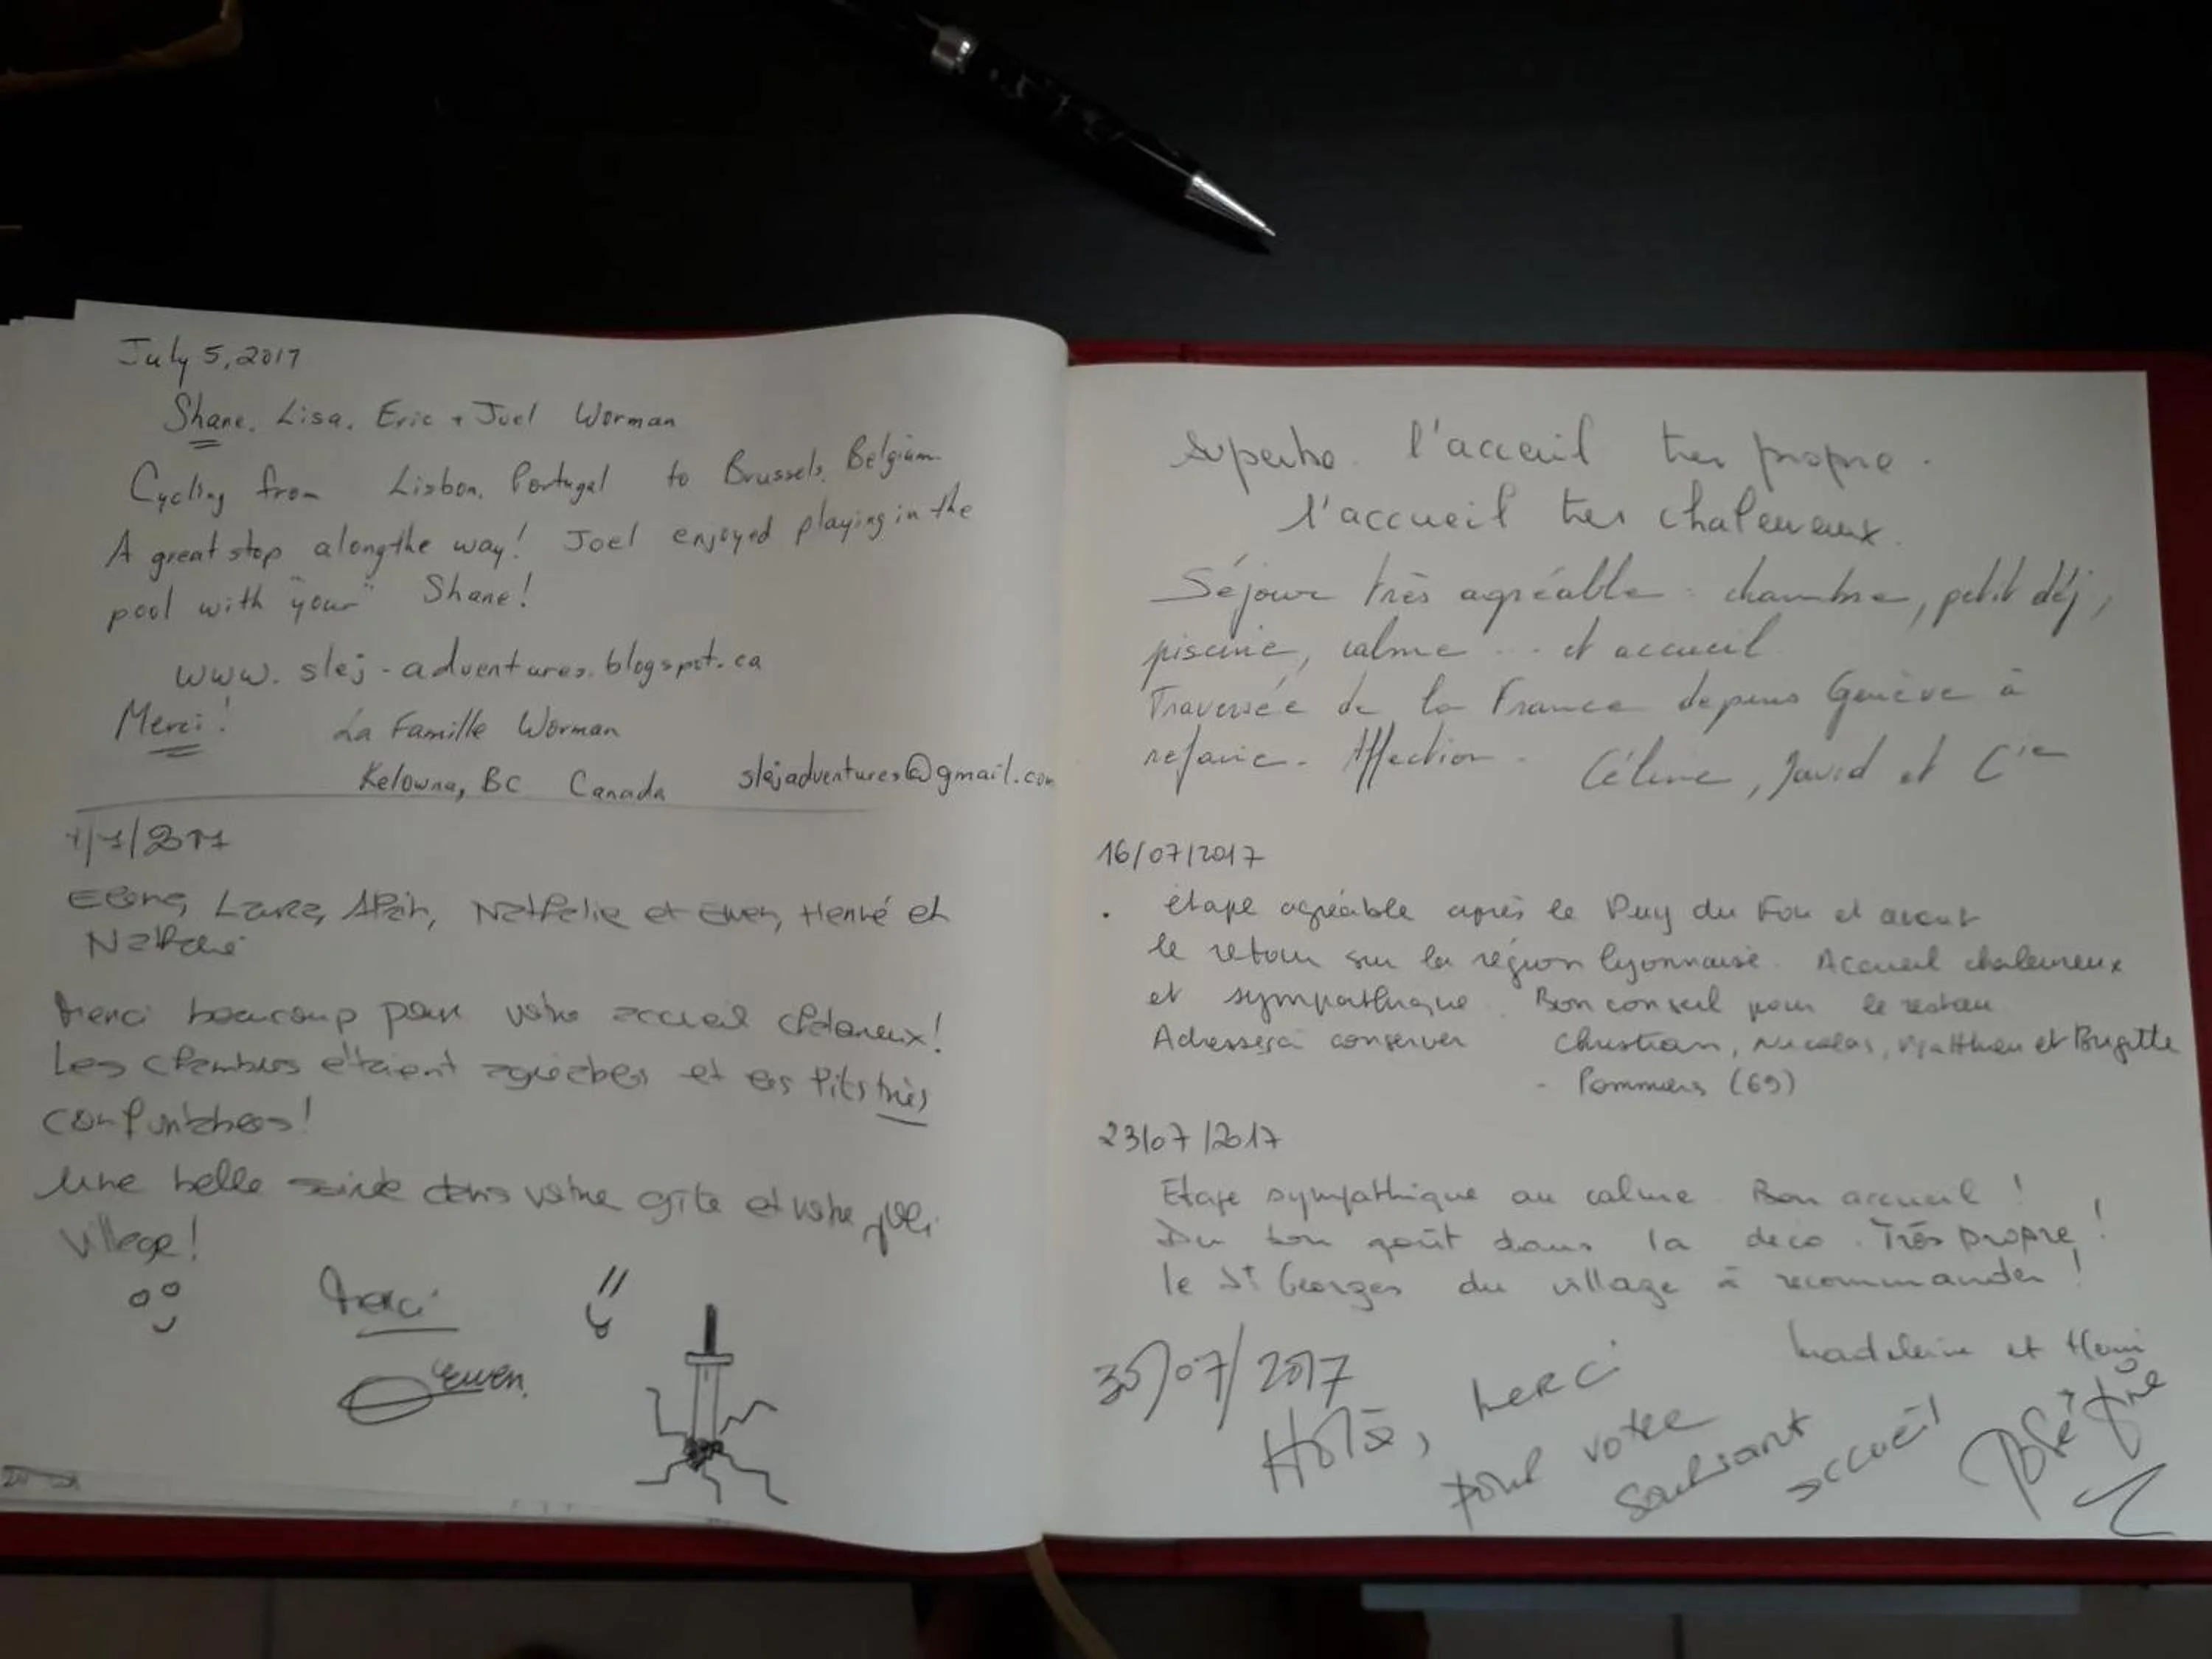 July 5, 2017
Shane, Lisa, Eric + Joel Worman
Cycling from Lisbon, Portugal to Brussels, Belgium.
A great stop along the way! Joel enjoyed playing in the
pool with "your" Shane!
www.slej-adventures.blogspot.ca
Merci! La Famille Worman
Kelowna, BC Canada slejadventures@gmail.com
Lara, Alain, Nathalie et Ewen, Hervé et
Nathalie
Merci beaucoup pour votre accueil chaleureux!
Les chambres étaient agréables et les lits très
confortables!
Une belle soirée dans votre gîte et votre joli
village!
Merci
Ewen
superbe l'acceuil tres propre.
l'accueil tres chaleureux.
Séjour très agréable : chambre, petit déj,
piscine, calme ... et accueil
Traversée de la France depuis Genève à
refaire. Affection. Céline, David et Cie
16/07/2017
étape agréable après le Puy du Fou et avant
le retour sur la région lyonnaise. Accueil chaleureux
et sympathique. Bon conseil pour le restau
Adresse à conserver Christian, Nicolas, Matthieu et Brigitte
- Pommiers (69)
23/07/2017
Etape sympathique au calme. Bon accueil !
Du bon goût dans la déco. Très propre !
le St Georges du village à recommander !
Madeleine et Henri
30/07/2017
Merci
pour votre
souriant
accueil